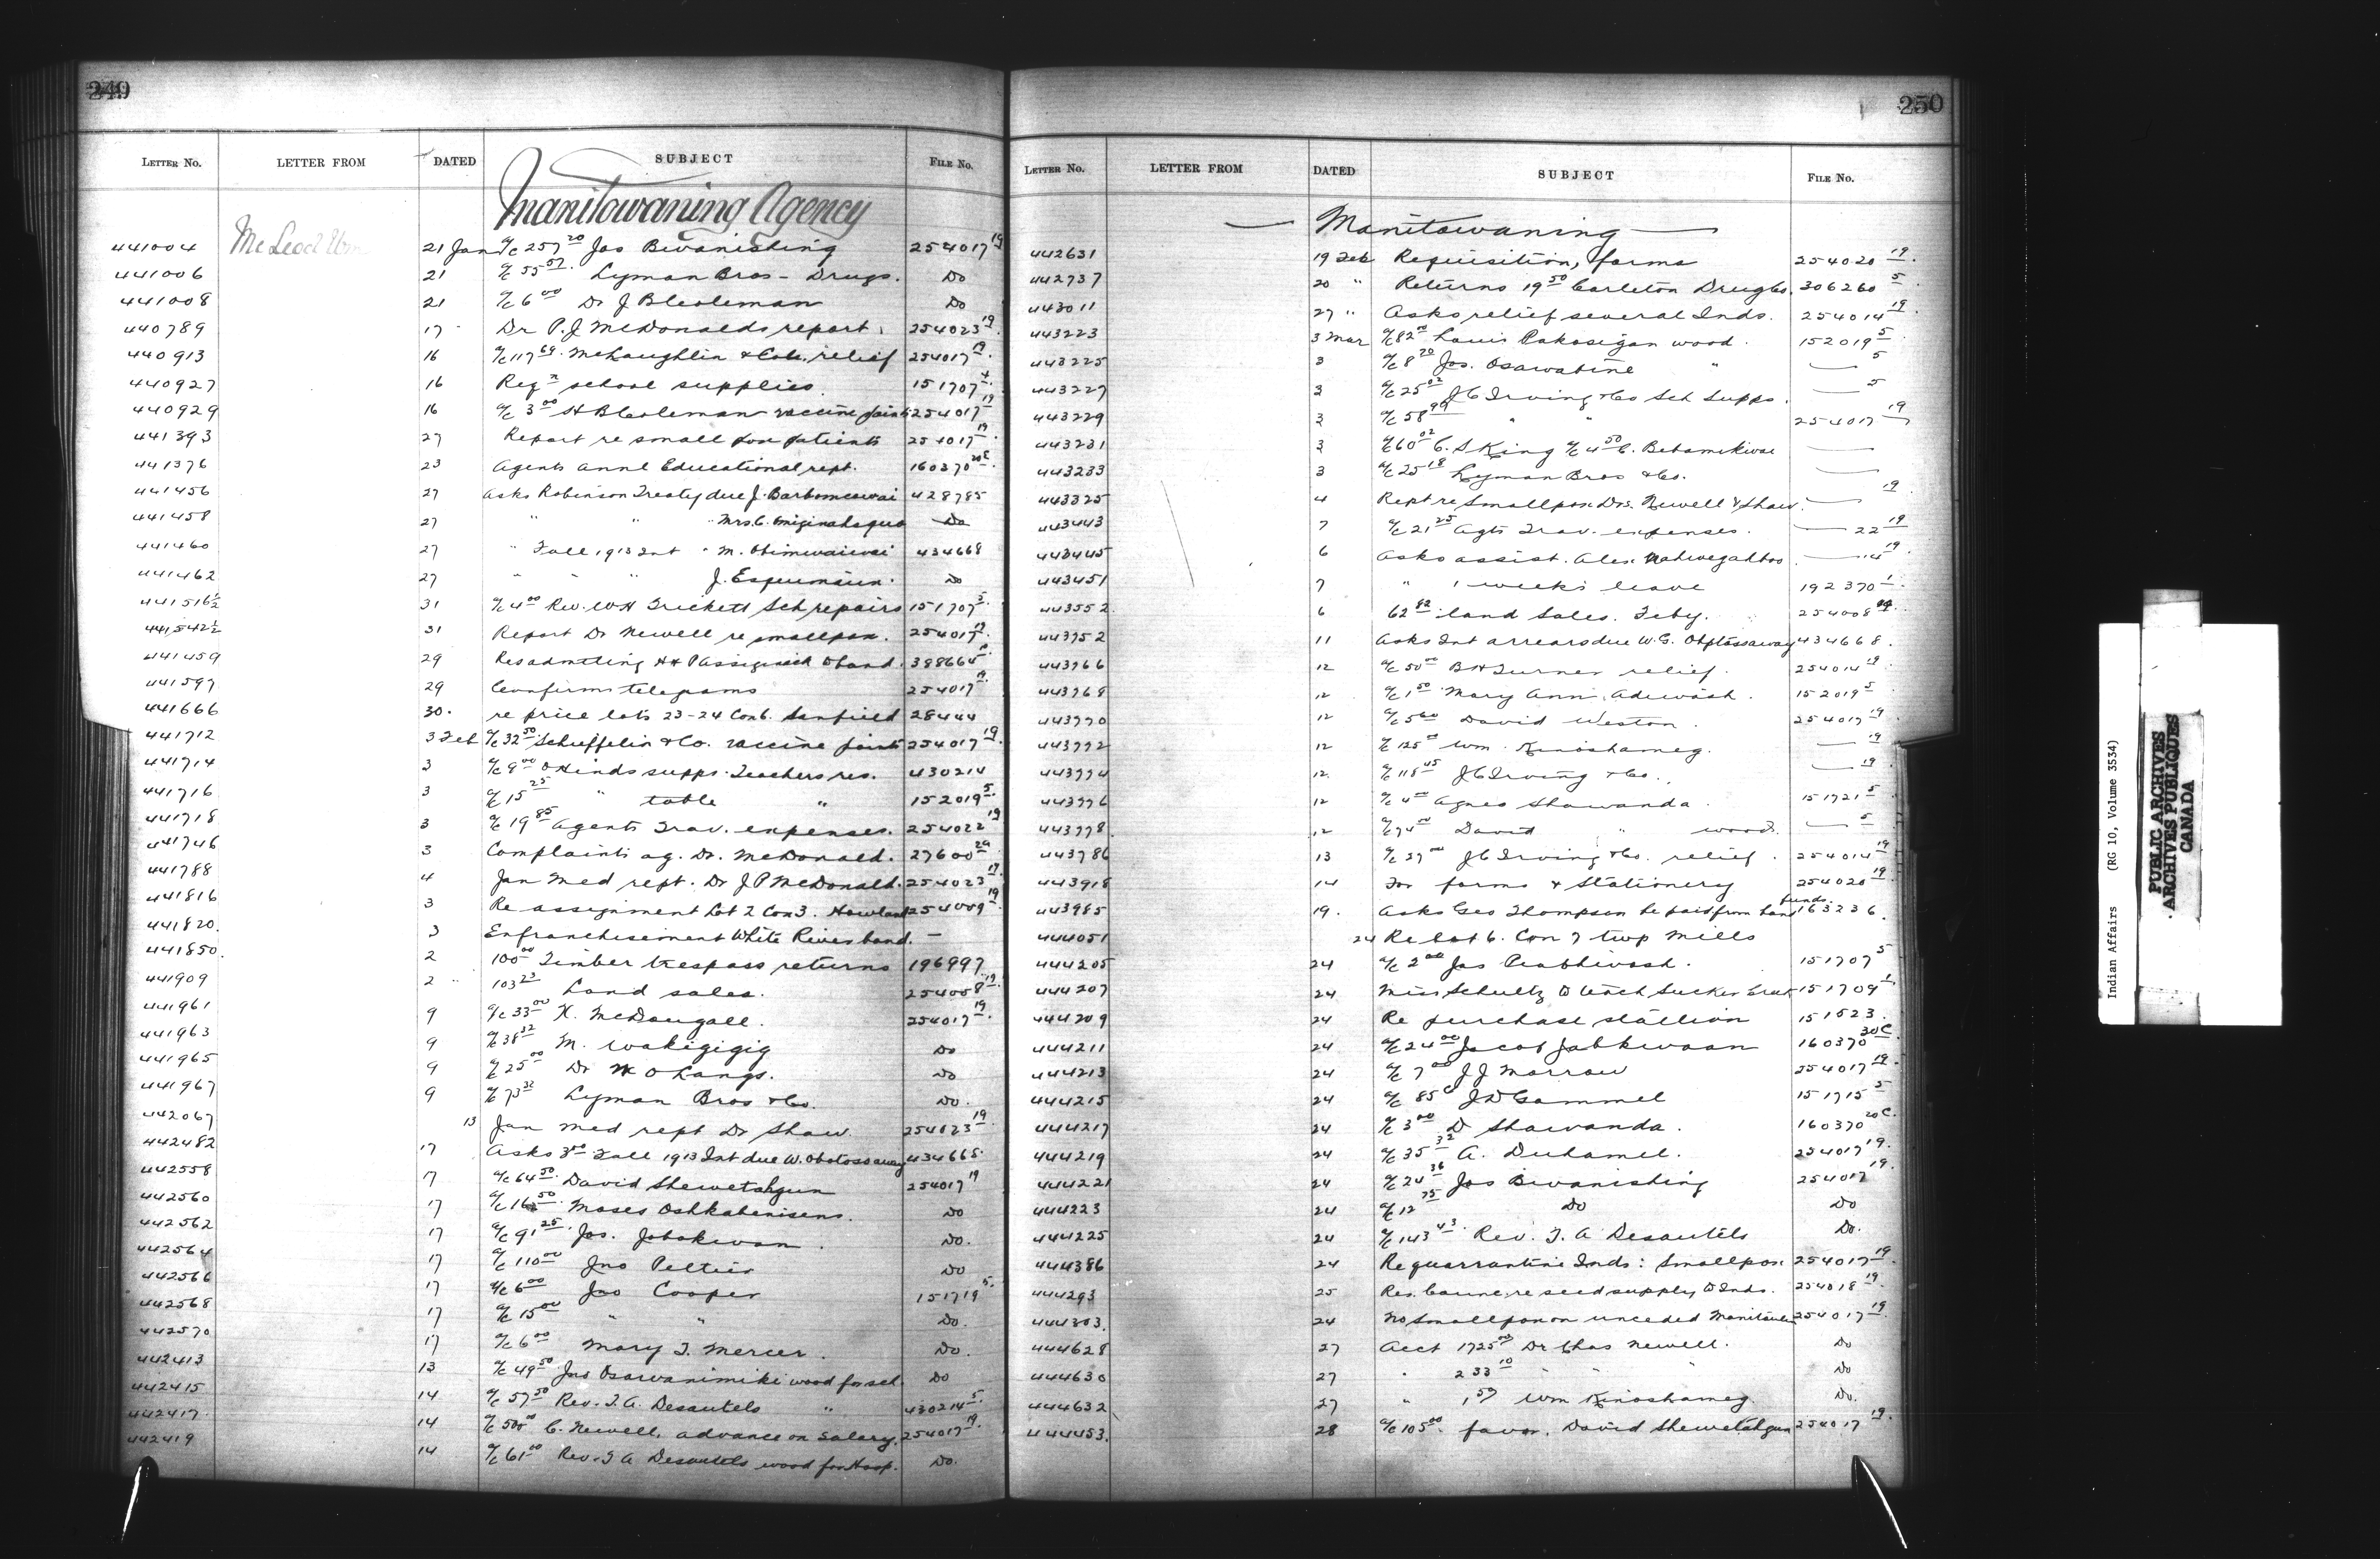 249
LETTER NO. LETTER FROM DATED SUBJECT FILE No.
Manitowaning Agency
441004 McLeod Wm 21 Jan a/c 257 20 Jas Bwanishing 254017 19
441006 21 a/c 55 57 Lyman Bros - Drugs. Do
441008 21 a/c 6 00 Dr J B Coleman Do
440789 17 Dr P.J McDonalds report. 254023 19
440913 16 a/c 117 69 McLaughlin & Co relief 254017 19
440927 16 Reqn school supplies 151707 4
440929 16 a/c 3 00 H B Coleman vaccine points 254017 19
441393 27 Report re small pox patients 254017 19
441376 23 Agents annl Educational rept. 160370
441456 27 Asks Robinson Treaty due J. 428785
441458 27 " " " Mrs. C. Do
441460 27 " Fall 1913 Int " M. 434668
441462 27 " " " J. Esquimaux Do
441516½ 31 a/c 4 00 Rev. W H Trickett Sch repairs 151707 5
441542½ 31 Report Dr Newell re smallpox. 254017 19
441459 29 Res admitting to band. 398664
441597 29 Confirms telegrams 254017 19
441666 30. re price lots 23-24 Con 6. Sandfield 28444
441712 3 Feb a/c 32 50 Schieffelin & Co. vaccine points 254017 19
441714 3 a/c 9 00 O Hinds supps. Teachers res. 430214
441716 3 a/c 15 25 " table " 152019 5
441718 3 a/c 19 85 Agents Trav. expenses. 254022 19
441746 3 Complaints ag. Dr. McDonald. 27600
441788 4 Jan Med rept. Dr J P McDonald. 254023 19
441816 3 Re assignment Lot 2 Con 3. Howland 254009 19
441820. 3 Enfranchisement White River band. -
441850 2 100 00 Timber trespass returns 196997
441909 2 " 103 23 Land sales. 254008 19
441961 9 a/c 33 00 K. McDougall. 254017 19
441963 9 a/c 38 32 M. Wakigigig Do
441965 9 a/c 25 00 Dr W O Langs. Do
441967 9 a/c 73 32 Lyman Bros & Co. Do.
442067 13 Jan Med rept Dr Shaw. 254023 19
442482 17 Asks Fall 1913 Int due W. 434668
442558 17 a/c 64 50 David Shewetahgun 254017 19
442560 17 a/c 16 50 Moses Oshkabenisens. Do
442562 17 a/c 91 25 Jos. Jabokwan. Do.
442564 17 a/c 110 00 Jno Peltier Do
442566 17 a/c 6 00 Jno Cooper 151719 5
442568 17 a/c 15 00 " " Do.
442570 17 a/c 6 00 Mary T. Mercer. Do.
442413 13 a/c 49 50 Jno Osawanimiki wood for sch. Do
442415 14 a/c 57 50 Rev. T. A. Desautels " 430214 5
442417 14 a/c 500 00 C. Newell, advance on salary. 254017 19
442419 14 a/c 61 00 Rev. T A Desautels wood for Hosp. Do.
250
LETTER No. LETTER FROM DATED SUBJECT FILE No.
Manitowaning
442631 19 Feb Requisition, forms 254020 19
442737 20 " Returns 19 50 Carleton Drug Co. 306260 5
443011 27 " Asks relief several Inds. 254014 19
443223 3 Mar a/c 82 00 Louis Pakosigan wood. 152019 5
443225 3 a/c 8 20 Jos. Osawabine " — 5
443227 3 a/c 25 02 J C Irving & Co Sch Supps. — 5
443229 3 a/c 58 99 " " 254017 19
443231 3 a/c 60 02 C. S King a/c 4 50 C. —
443233 3 a/c 25 18 Lyman Bros & Co. —
443325 4 Rept re Smallpox Drs. Newell & Shaw. — 19
443443 7 a/c 21 25 Agts Trav. expenses. — 22 19
443445 6 Asks assist. Alex. Nahwegahbo — 14 19
443451 7 " 1 weeks leave 192370 1
443552 6 62 82 land Sales. Feby. 254008 19
443752 11 Asks Int arrears due W. G. 434668.
443766 12 a/c 50 00 B H Turner relief. 254014 19
443768 12 a/c 1 50 Mary Ann Adiwash. 152019 5
443770 12 a/c 5 60 David Weston. 254017 19
443772 12 a/c 125 00 Wm. Kinoshameg. — 19
443774 12. a/c 118 45 J C Irving & Co. — 19
443776 12 a/c 4 00 Agnes Shawanda. 151721 5
443778. 12 a/c 74 00 David " wood. — 5
443786 13 a/c 27 00 J C Irving & Co. relief. 254014 19
443918 14 For forms & Stationery 254020 19
443985 19. Asks Geo Thompson be paid from band funds. 163236.
444051 24 Re Lot 6. Con 7 twp Mills
444205 24 a/c 2 00 Jas Peabtiwash. 151707 5
444207 24 Miss Schultz to teach Sucker Creek 151709 1
444209 24 Re purchase stallion 151523.
444211 24 a/c 24 00 Jacob Jabkwaan 160370 30C
444213 24 a/c 7 00 J J Morrow 254017 19
444215 24 a/c 85c J D Gammel 151715 5
444217 24 a/c 3 00 D Shawanda. 160370 20C.
444219 24 a/c 35 32 A. Duhamel. 254017 19.
444221 24 a/c 24 36 Jos Bwanishing 254017 19.
444223 24 a/c 12 75 Do Do
444225 24 a/c 143 43 Rev. T. A Desautels Do.
444386 24 Re quarrantine Inds: Smallpox 254017 19
444293 25 Res. Counc. re seed supply to Inds. 254018 19
444303. 24 No Smallpox on unceded Manitoulin 254017 19
444628 27 Acct 1725 00 Dr Chas Newell. Do
444630 27 " 233 10 " " " Do
444632 27 " 1 57 Wm Kinoshameg. Do.
444453. 28 a/c 105 00. favor. David Shewetahgun 254017 19.
Indian Affairs (RG 10, Volume 3534)
PUBLIC ARCHIVES
ARCHIVES PUBLIQUES
CANADA